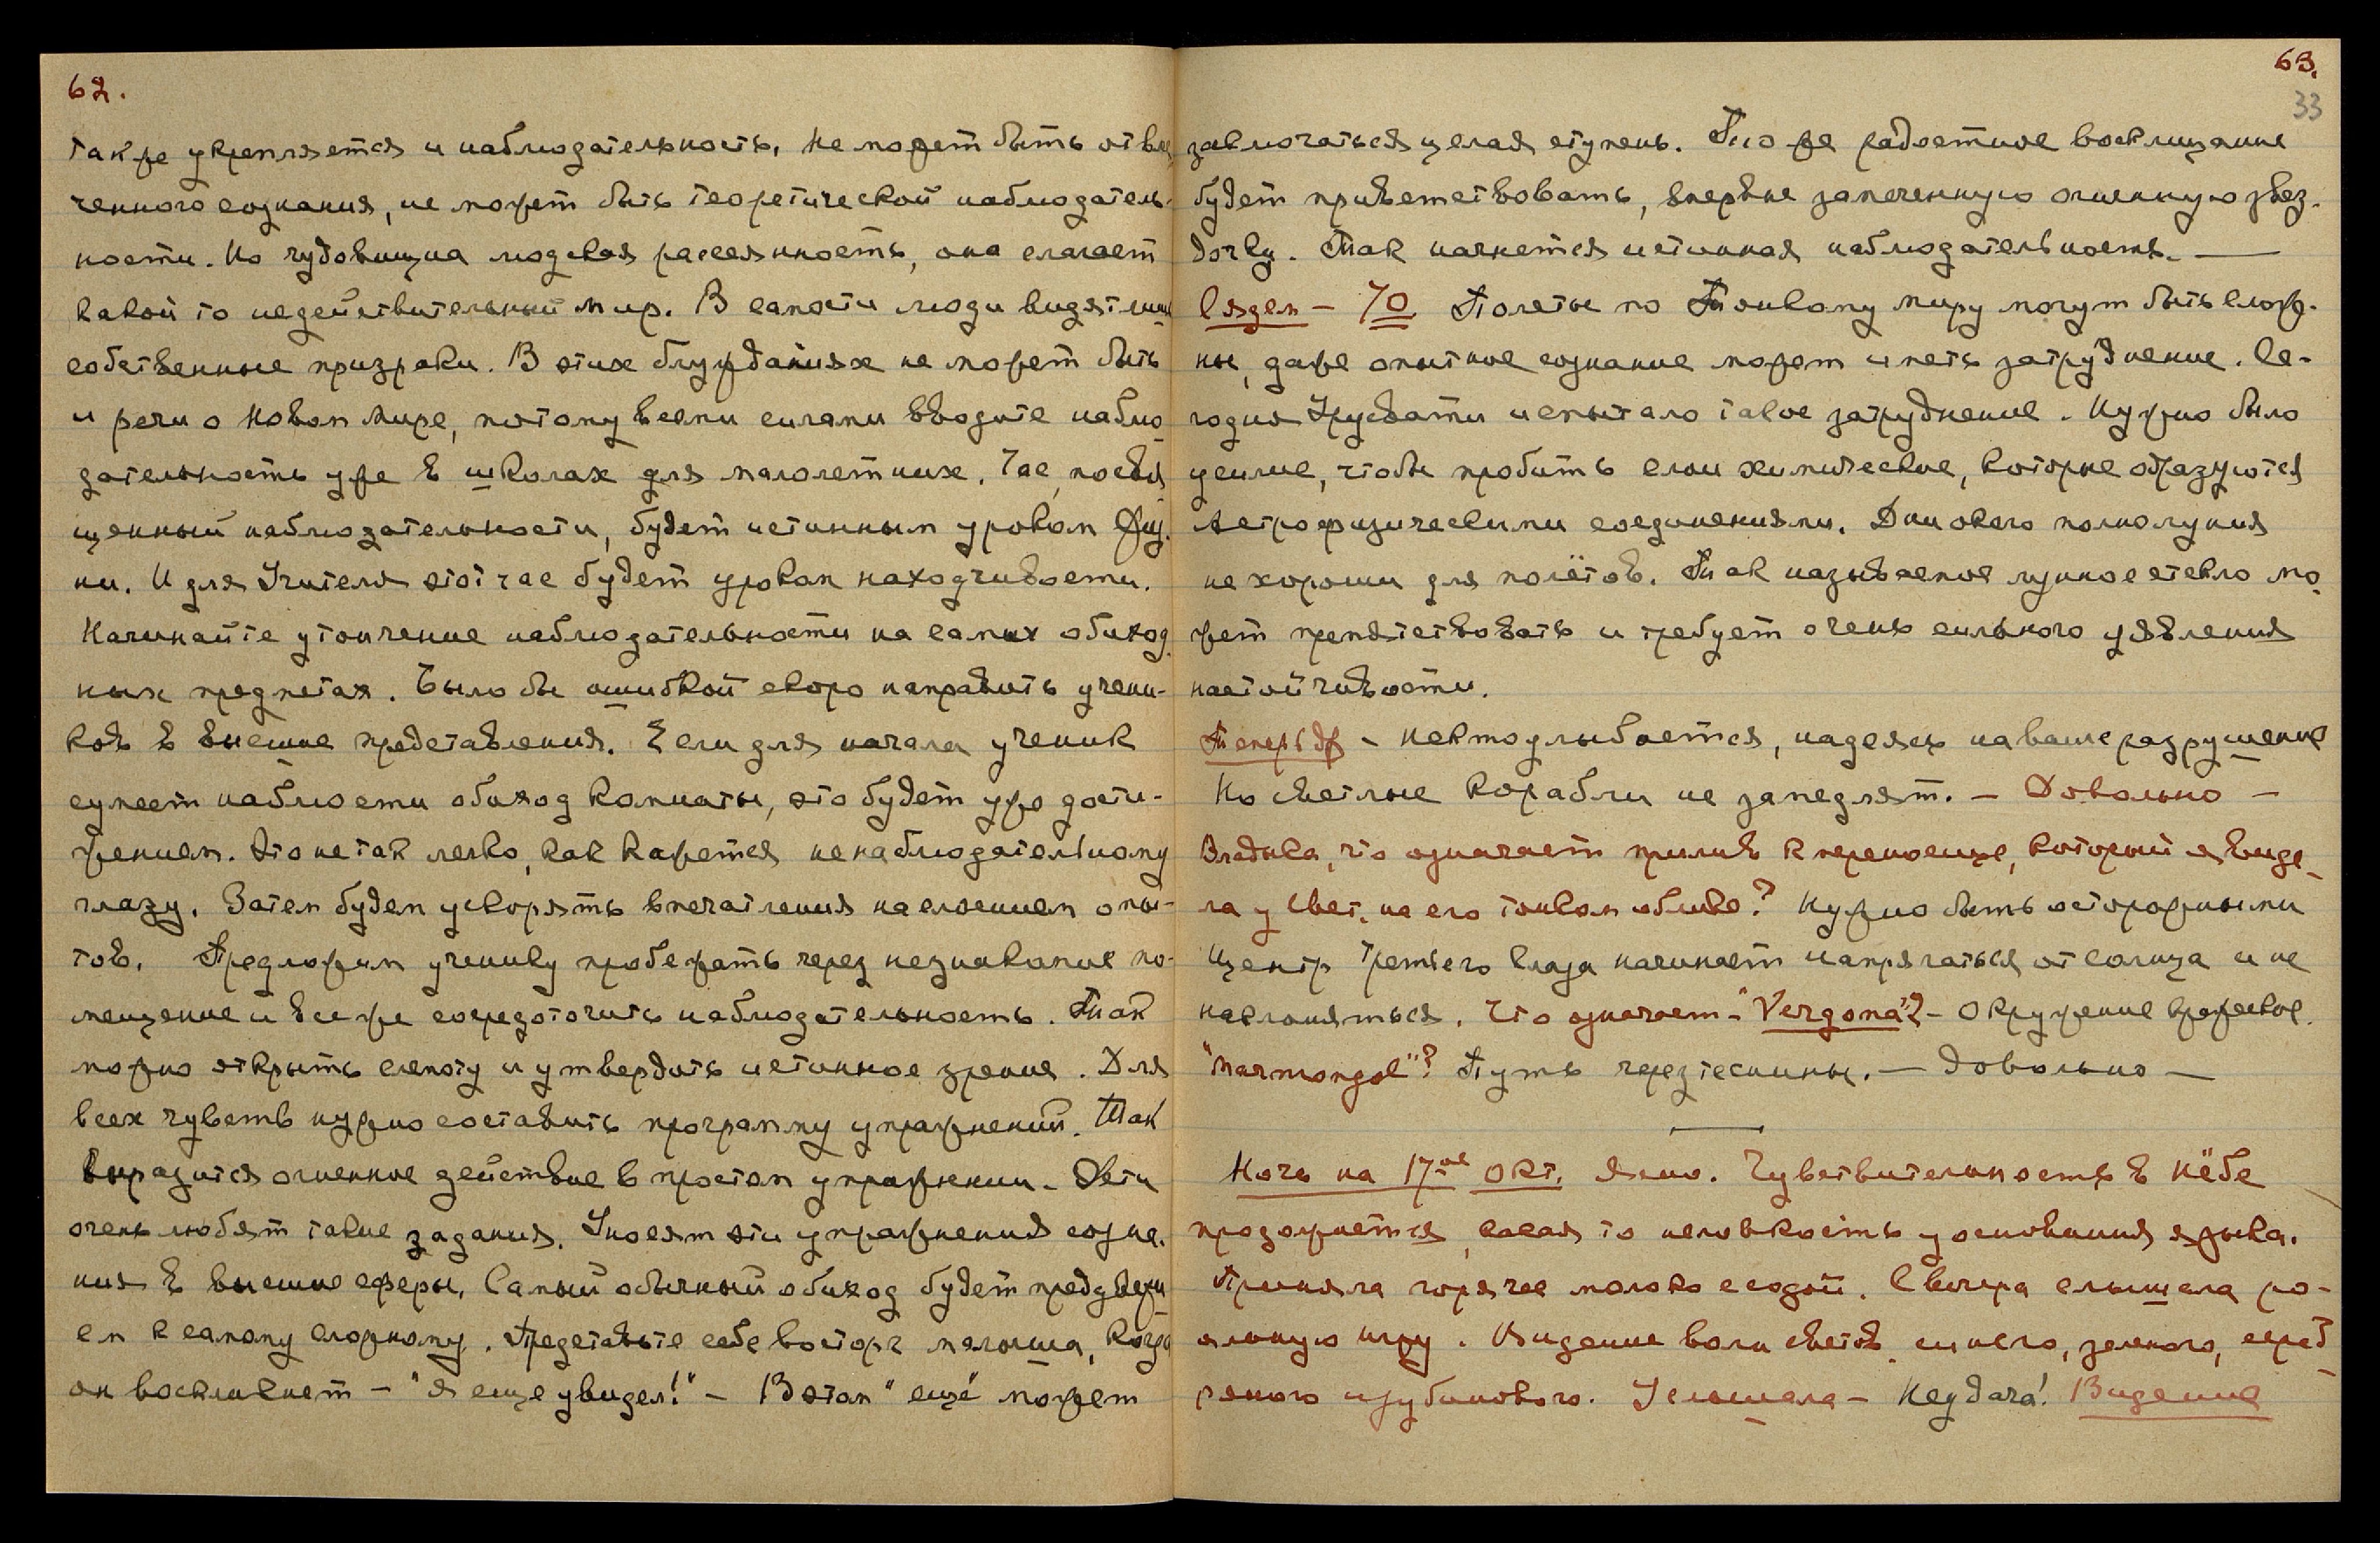 62.
также укрепляется и наблюдательность. Не может быть отвле-
ченного сознания, не может быть теоретической наблюдатель-
ности. Но чудовищна людская рассеянность, она слагает
какой то недействительный мир. В самости люди видят лишь
собственные призраки. В этих блужданиях не может быть
и речи о Новом Мире, потому всеми силами вводите наблю-
дательность уже в школах для малолетних. Час, посвя-
щенный наблюдательности, будет истинным уроком жиз-
ни. И для Учителя этот час будет уроком находчивости.
Начинайте утончение наблюдательности на самых обиход-
ных предметах. Было бы ошибкой скоро направить учени-
ков в высшие представления. Если для начала ученик
сумеет наблюсти обиход комнаты, это будет уже дости-
жением. Это не так легко, как кажется ненаблюдательному
глазу. Затем будем ускорять впечатления наслоением опы-
тов. Предложим ученику пробежать через незнакомое по-
мещение и все же сосредоточить наблюдательность. Так
можно открыть слепоту и утвердить истинное зрение. Для
всех чувств нужно составить программу упражнений. Так
выразится огненное действие в простом упражнении. Дети
очень любят такие задания. Уносят эти упражнения созна-
ния в высшие сферы. Самый обычный обиход будет предувери
ем к самому сложному. Представьте себе восторг малыша, когда
он воскликнет – "я еще увидел!" – В этом "ещё" может
63.
33
заключаться целая ступень. То же радостное восклицание
будет приветствовать, впервые замеченную огненную звез-
дочку. Так начнется истинная наблюдательность. —
Следом – 70 Полеты по Тонкому Миру могут быть слож-
ны, даже опытное сознание может иметь затруднение. Се-
годня Урусвати испытало такое затруднение. Нужно было
усилие, чтобы пробить слои химические, которые образуются
Астрофизическими соединениями. Дни около полнолуния
не хороши для полётов. Так называемое лунное стекло мо-
жет препятствовать и требует очень сильного уявления
настойчивости.
Теперь др – Некто улыбается, надеясь на ваше разрушение
Но светлые корабли не замедлят. – Довольно –
Владыка, что означает прилив к переносице, который я виде-
ла у Свет. на его тонком облике? Нужно быть осторожными
Центр Третьего Глаза начинает напрягаться от солнца и не
наклоняться. Что означает – "Vergona"? – Окружение вражеское.
"Marmongol"? Путь через теснины. – Довольно –
Ночь на 17ое Окт. Ясно. Чувствительность в нёбе
продолжается, какая то неловкость у основания языка.
Приняла горячее молоко с содой. С вечера слышала ро-
яльную игру. Видение волн светов. синего, зеленого, сереб-
ряного и рубинового. Услышала – Неудача! Видение